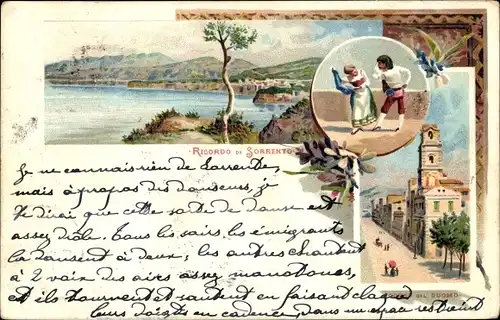 RICORDO DI SORRENTO
Je ne connais rien de Sorrente,
mais à propos des danseurs, je
te dirai que cette sorte de danse est
assez drôle. Tous les soirs, les émigrants
la dansent à deux; les autres chantent
à 2 voix des airs assez monotones,
et ils tournent et sautent en faisant claquer
leurs doigts en cadence, dans un espace restreint
DEL DUOMO